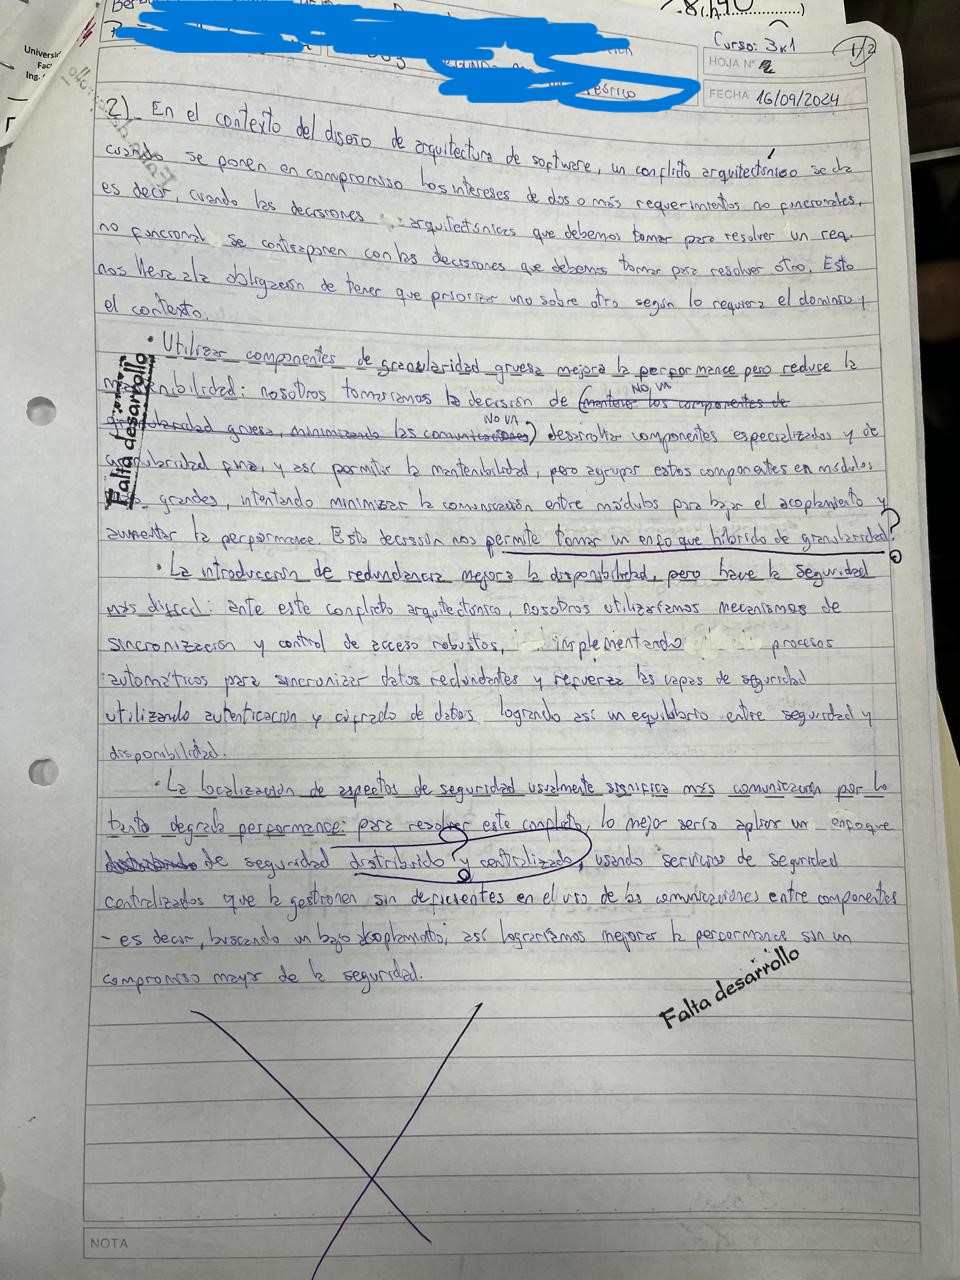 Universi
Fac
Ing.
8.(h.90............)
Curso: 3K1
1/2
HOJA N° 2
teórico
FECHA 16/09/2024
2) En el contexto del diseño de arquitectura de software, un conflicto arquitectónico se da
cuando se ponen en compromiso los intereses de dos o más requerimientos no funcionales,
es decir, cuando las decisiones arquitectónicas que debemos tomar para resolver un req.
no funcional se contraponen con las decisiones que debemos tomar para resolver otro. Esto
nos lleva a la obligación de tener que priorizar uno sobre otro según lo requiera el dominio y
el contexto.
• Utilizar componentes de granularidad gruesa mejora la performance pero reduce la
mantenibilidad: nosotros tomaríamos la decisión de (mantener los componentes de
NO VA
granularidad gruesa, minimizando las comunicaciones) desarrollar componentes especializados y de
NO VA
granularidad fina, y así permitir la mantenibilidad, pero agrupar estos componentes en módulos
grandes, intentando minimizar la comunicación entre módulos para bajar el acoplamiento y
aumentar la performance. Esta decisión nos permite tomar un enfoque híbrido de granularidad. ?
Falta desarrollo
• La introducción de redundancia mejora la disponibilidad, pero hace la seguridad
más difícil: ante este conflicto arquitectónico, nosotros utilizaríamos mecanismos de
sincronización y control de acceso robustos, implementando procesos
automáticos para sincronizar datos redundantes y reforzar las capas de seguridad
utilizando autenticación y cifrado de datos logrando así un equilibrio entre seguridad y
disponibilidad.
• La localización de aspectos de seguridad usualmente significa más comunicación por lo
tanto degrada performance: para resolver este conflicto, lo mejor sería aplicar un enfoque
de seguridad distribuido y centralizado, usando servicios de seguridad
?
centralizados que la gestionen sin deficientes en el uso de las comunicaciones entre componentes
- es decir, buscando un bajo acoplamiento; así lograríamos mejorar la performance sin un
compromiso mayor de la seguridad.
Falta desarrollo
NOTA